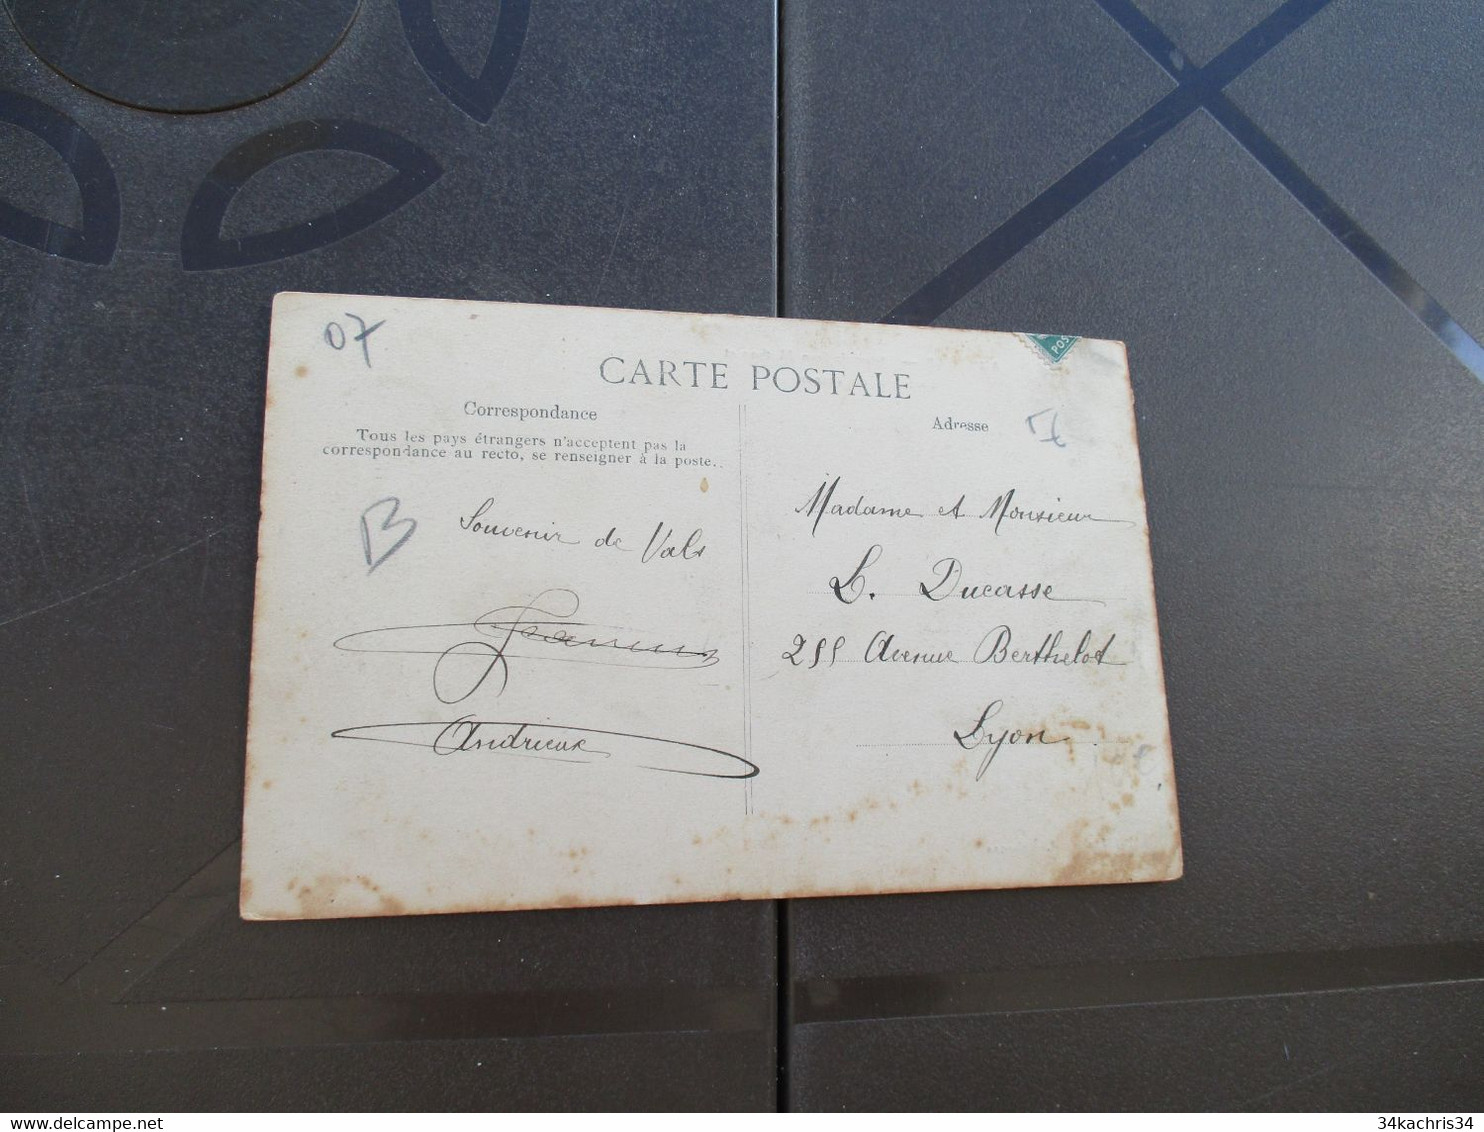 07
POS
CARTE POSTALE
Correspondance
Tous les pays étrangers n'acceptent pas la
correspondance au recto, se renseigner à la poste.
B
Souvenir de Vals
Andrieux
Adresse
Madame et Monsieur
L. Ducasse
255 Avenue Berthelot
Lyon
34kachris34